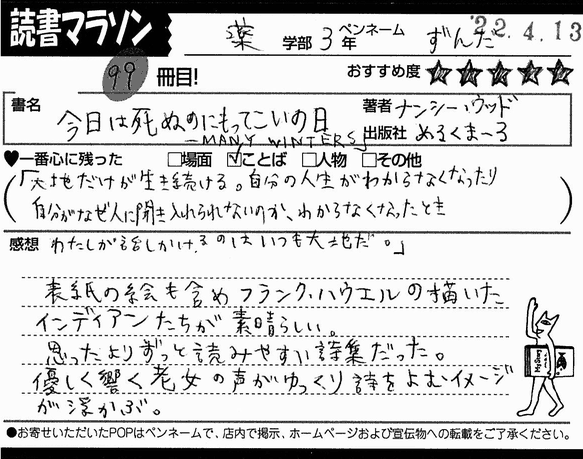 読書マラソン
薬 学部 3年 ペンネーム ずんだ '22.4.13
99 冊目!
おすすめ度 ☆☆☆☆☆
書名 今日は死ぬのにもってこいの日
-MANY WINTERS-
著者 ナンシー・ウッド
出版社 めるくまーる
♥一番心に残った □場面 ☑ことば □人物 □その他
「大地だけが生き続ける。自分の人生がわからなくなったり
自分がなぜ人に聞き入れられないのか、わからなくなったとき
わたしが話しかけるのはいつも大地だ。」
感想
表紙の絵も含めフランク・ハウエルの描いた
インディアンたちが素晴らしい。
思ったよりずっと読みやすい詩集だった。
優しく響く老女の声がゆっくり詩をよむイメージ
が浮かぶ。
●お寄せいただいたPOPはペンネームで、店内で掲示、ホームページおよび宣伝物への転載をご了承ください。